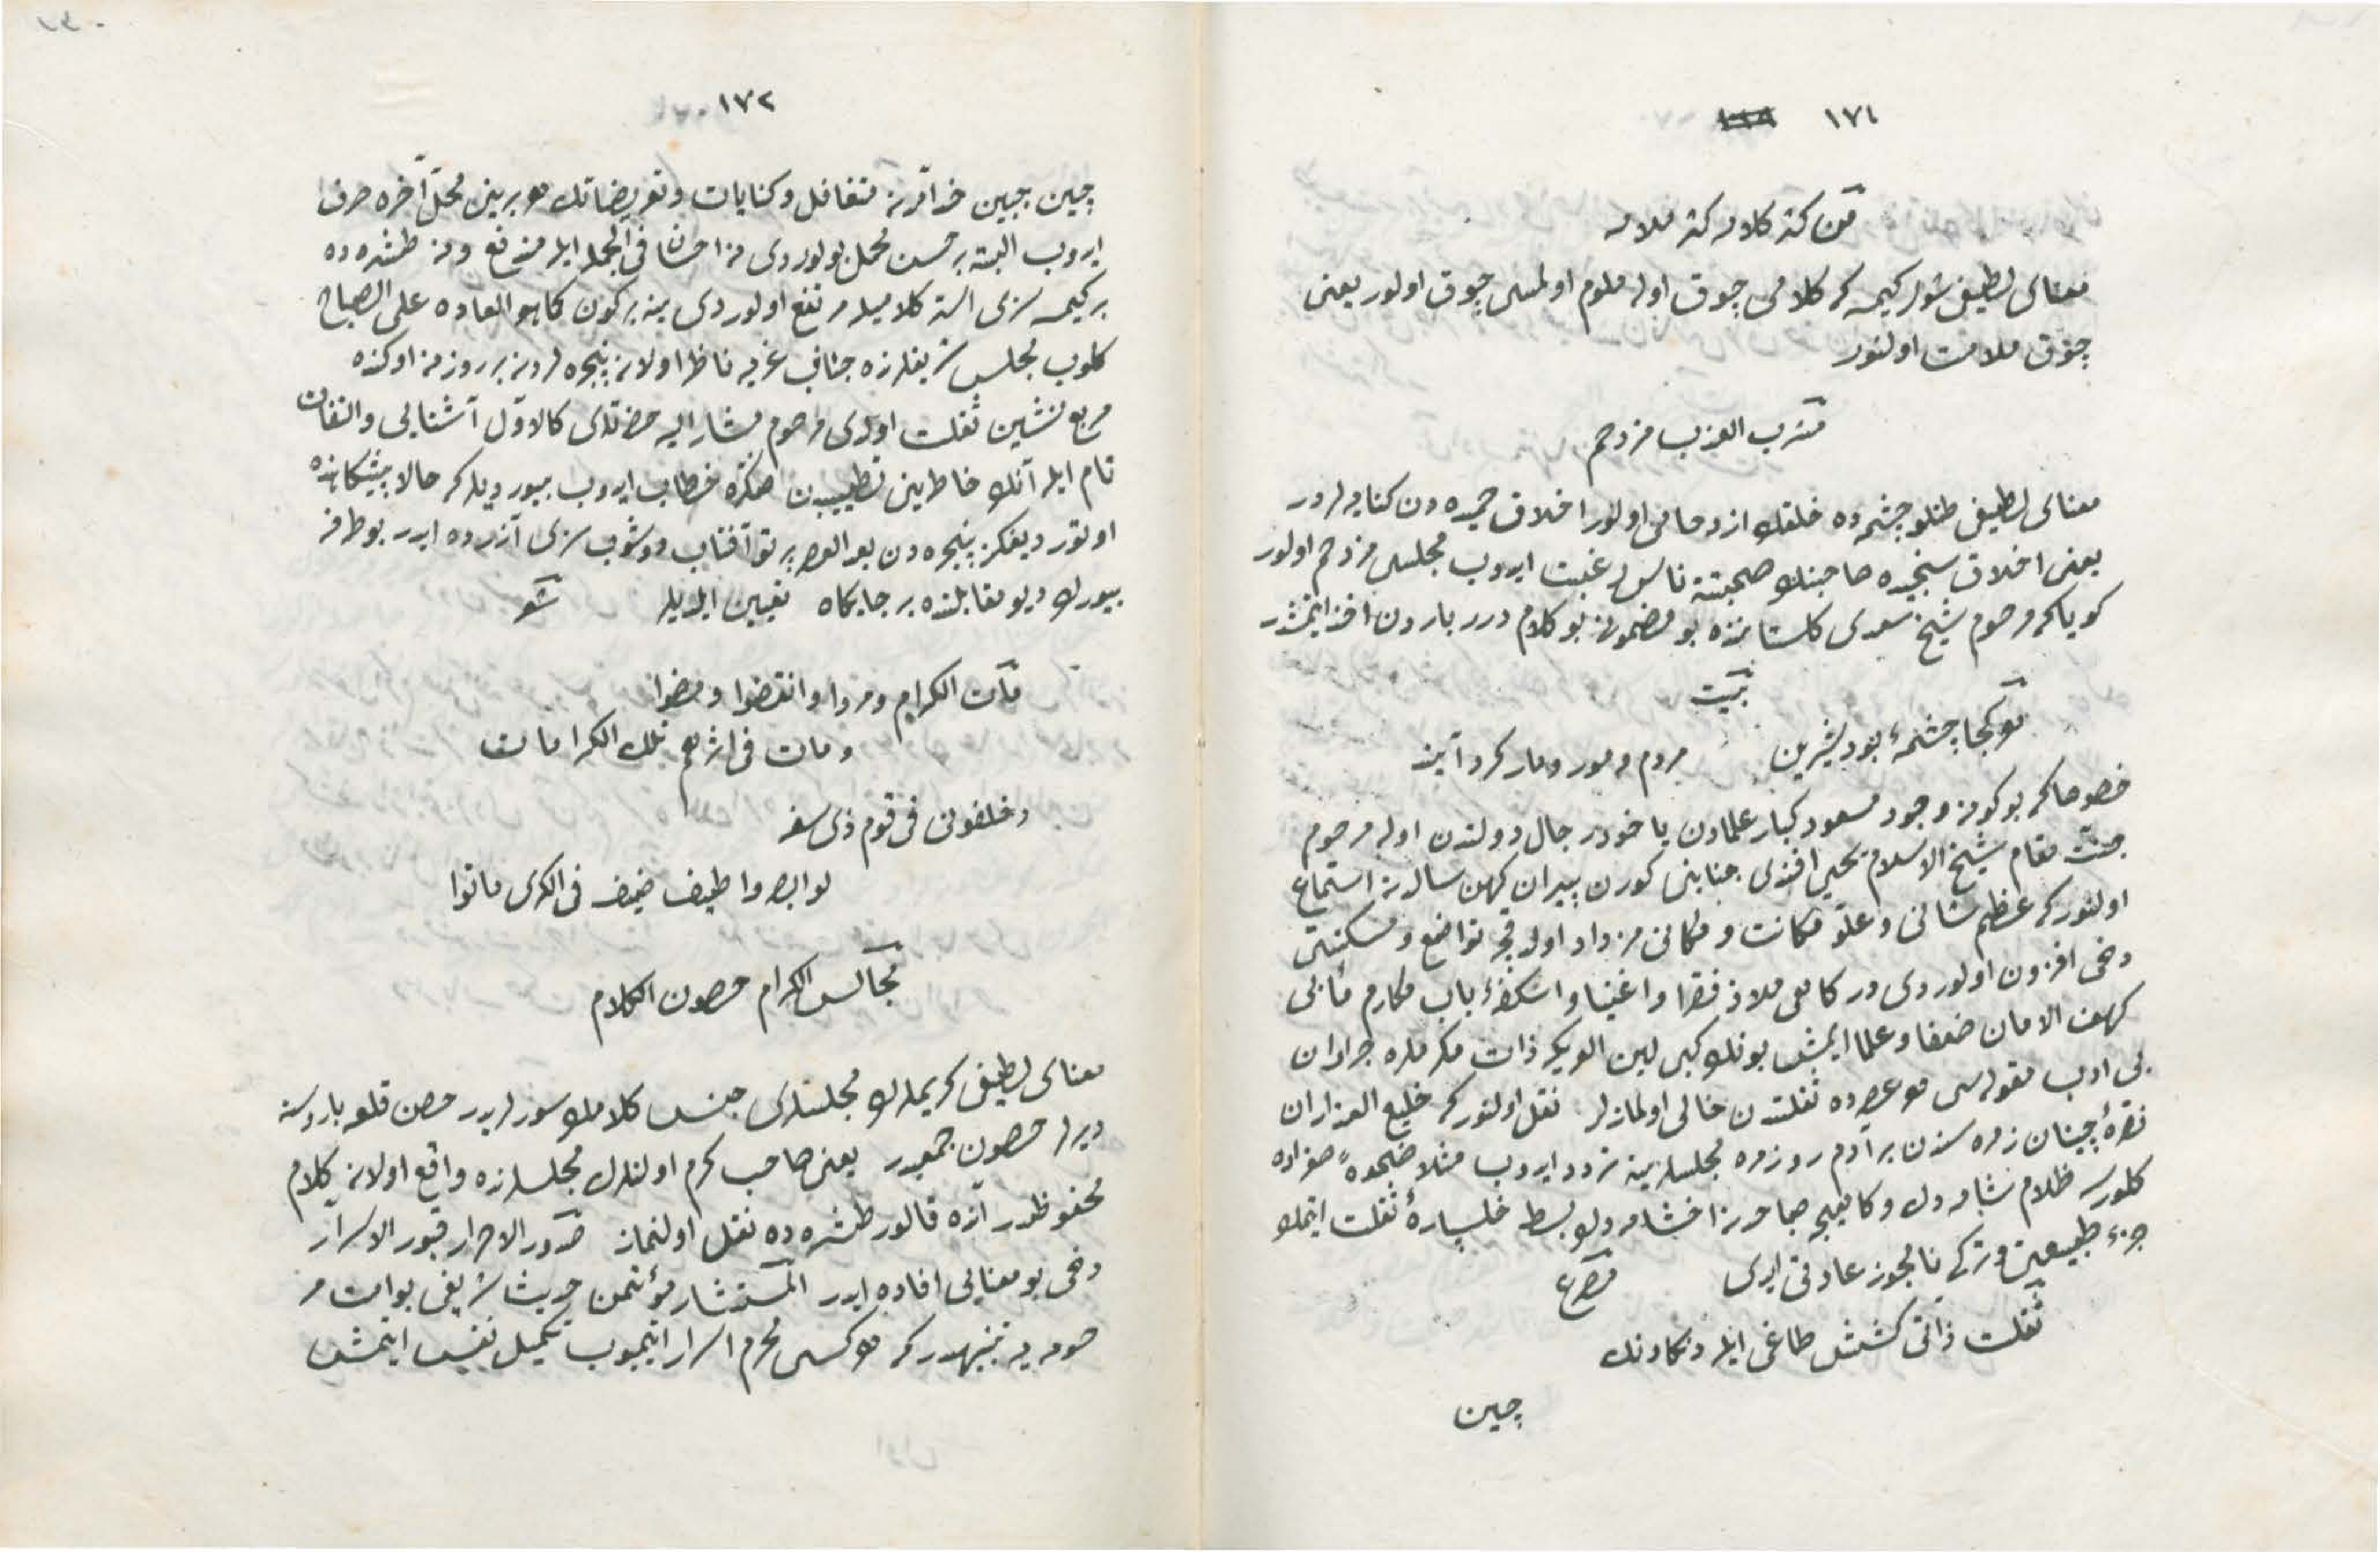 ١٧١
من كثر كلامه كثر ملامه
معناى لطيفى شول كيمسه كه كلامى چوق اوله ملوم اولمسى چوق اولور يعنى
چوق ملامت اولنور
مشرب العذب مزدحم
معناى لطيفى طتلو چشمه ده خلقك ازدحامى اولور اخلاق حميده دن كنايه لردر
يعنى اخلاق سنجيده صاحبنك صحبتنه ناس رغبت ايدوب مجلسى مزدحم اولور
كوياكه مرحوم شيخ سعدى كلستاننده بو مضمونى بو كلام درر باردن اخذ ايتمشدر
بيت
هر كجا چشمۀ بود شيرين مردم و مور و مار كرد آيند
خصوصا كه بو كونه وجود مسعود كبار علمادن يا خود رجال دولتدن اوله مرحوم
جنت مقام شيخ الاسلام يحيى افندى جنابنى كورن پيران كهن سالدن استماع
اولنور كه عظم شانى و علو مكانت و مكانى مزداد اولدقجه تواضع و مسكنتى
دخى افزون اولوردى دركاهى ملاذ فقرا و اغنيا و اسكفۀ باب مكارم مآبى
كهف الامان ضعفا و علما ايمش بونك كبى لين العريكه ذات مكرملره جرادان
بى ادب مقوله سى هر عصرده ثقلتدن خالى اولمازلر نقل اولنور كه خليع العذاران
نقرۀ چينان زمره سندن بر آدم روزمره مجلسلرينه تردد ايدوب مثلا ضحوه صغراده
كلورسه ظلام شامه دك و كاهيجه صباحدن اخشامه دك بسط خلپارۀ ثقلت ايتمك
جزء طبيعتى و تركى نا يجوز عادتى ايدى مصرع
ثقلت ذاتى كشش طاغى ايله دنكادنك
چين
١٧٢
چين جبين خدامدن تغافل و كنايات و تعريضاتك هر برينى محل آخره صرف
ايدوب البته بر حسن محمل بولوردى نه احسان فى الجمله ايله مندفع و نه طشره ده
بر كيمسه سزى استر كلاميله مرتفع اولوردى ينه بر كون كما هو العاده على الصباح
كلوب مجلس شريفلرنده جناب غربه ناظر اولان پنجره لردن بر روزنه اوكنده
مربع نشين ثقلت اولدى مرحوم مشار اليه حضرتلرى كالاول آشنايى و التفات
تام ايله آنك خاطرينى تطييبدن صكره خطاب ايدوب بيورديلر كه حالا پيشكاهنده
اوتورديغكز پنجره دن بعد العصر پرتو آفتاب دوشوب سزى آزرده ايدر بو طرفه
بيورك ديو مقابلنده بر جايكاه تعيين ايلديلر شعر
مات الكرام و مروا و انقضوا و مضوا
و مات فى اثرهم تلك الكرامات
و خلفونى فى قوم ذى سفه
لو ابصروا طيف ضيف فى الكرى ماتوا
مجالس الكرام حصون الكلام
معناى لطيفى كريملرك مجلسلرى جنس كلامك سورلريدر حصن قلعه باروسنه
ديرلر حصون جمعيدر يعنى صاحب كرم اولنلرك مجلسلرنده واقع اولان كلام
محفوظدر آنده قالور طشره ده نقل اولنماز صدور الاحرار قبور الاسرار
دخى بو معنايى افاده ايدر المستشار مؤتمن حديث شريفى بو امت مر
حومه يه تنبيهدر كه هر كسى محرم اسرار ايتميوب تكميل نفس ايتمش